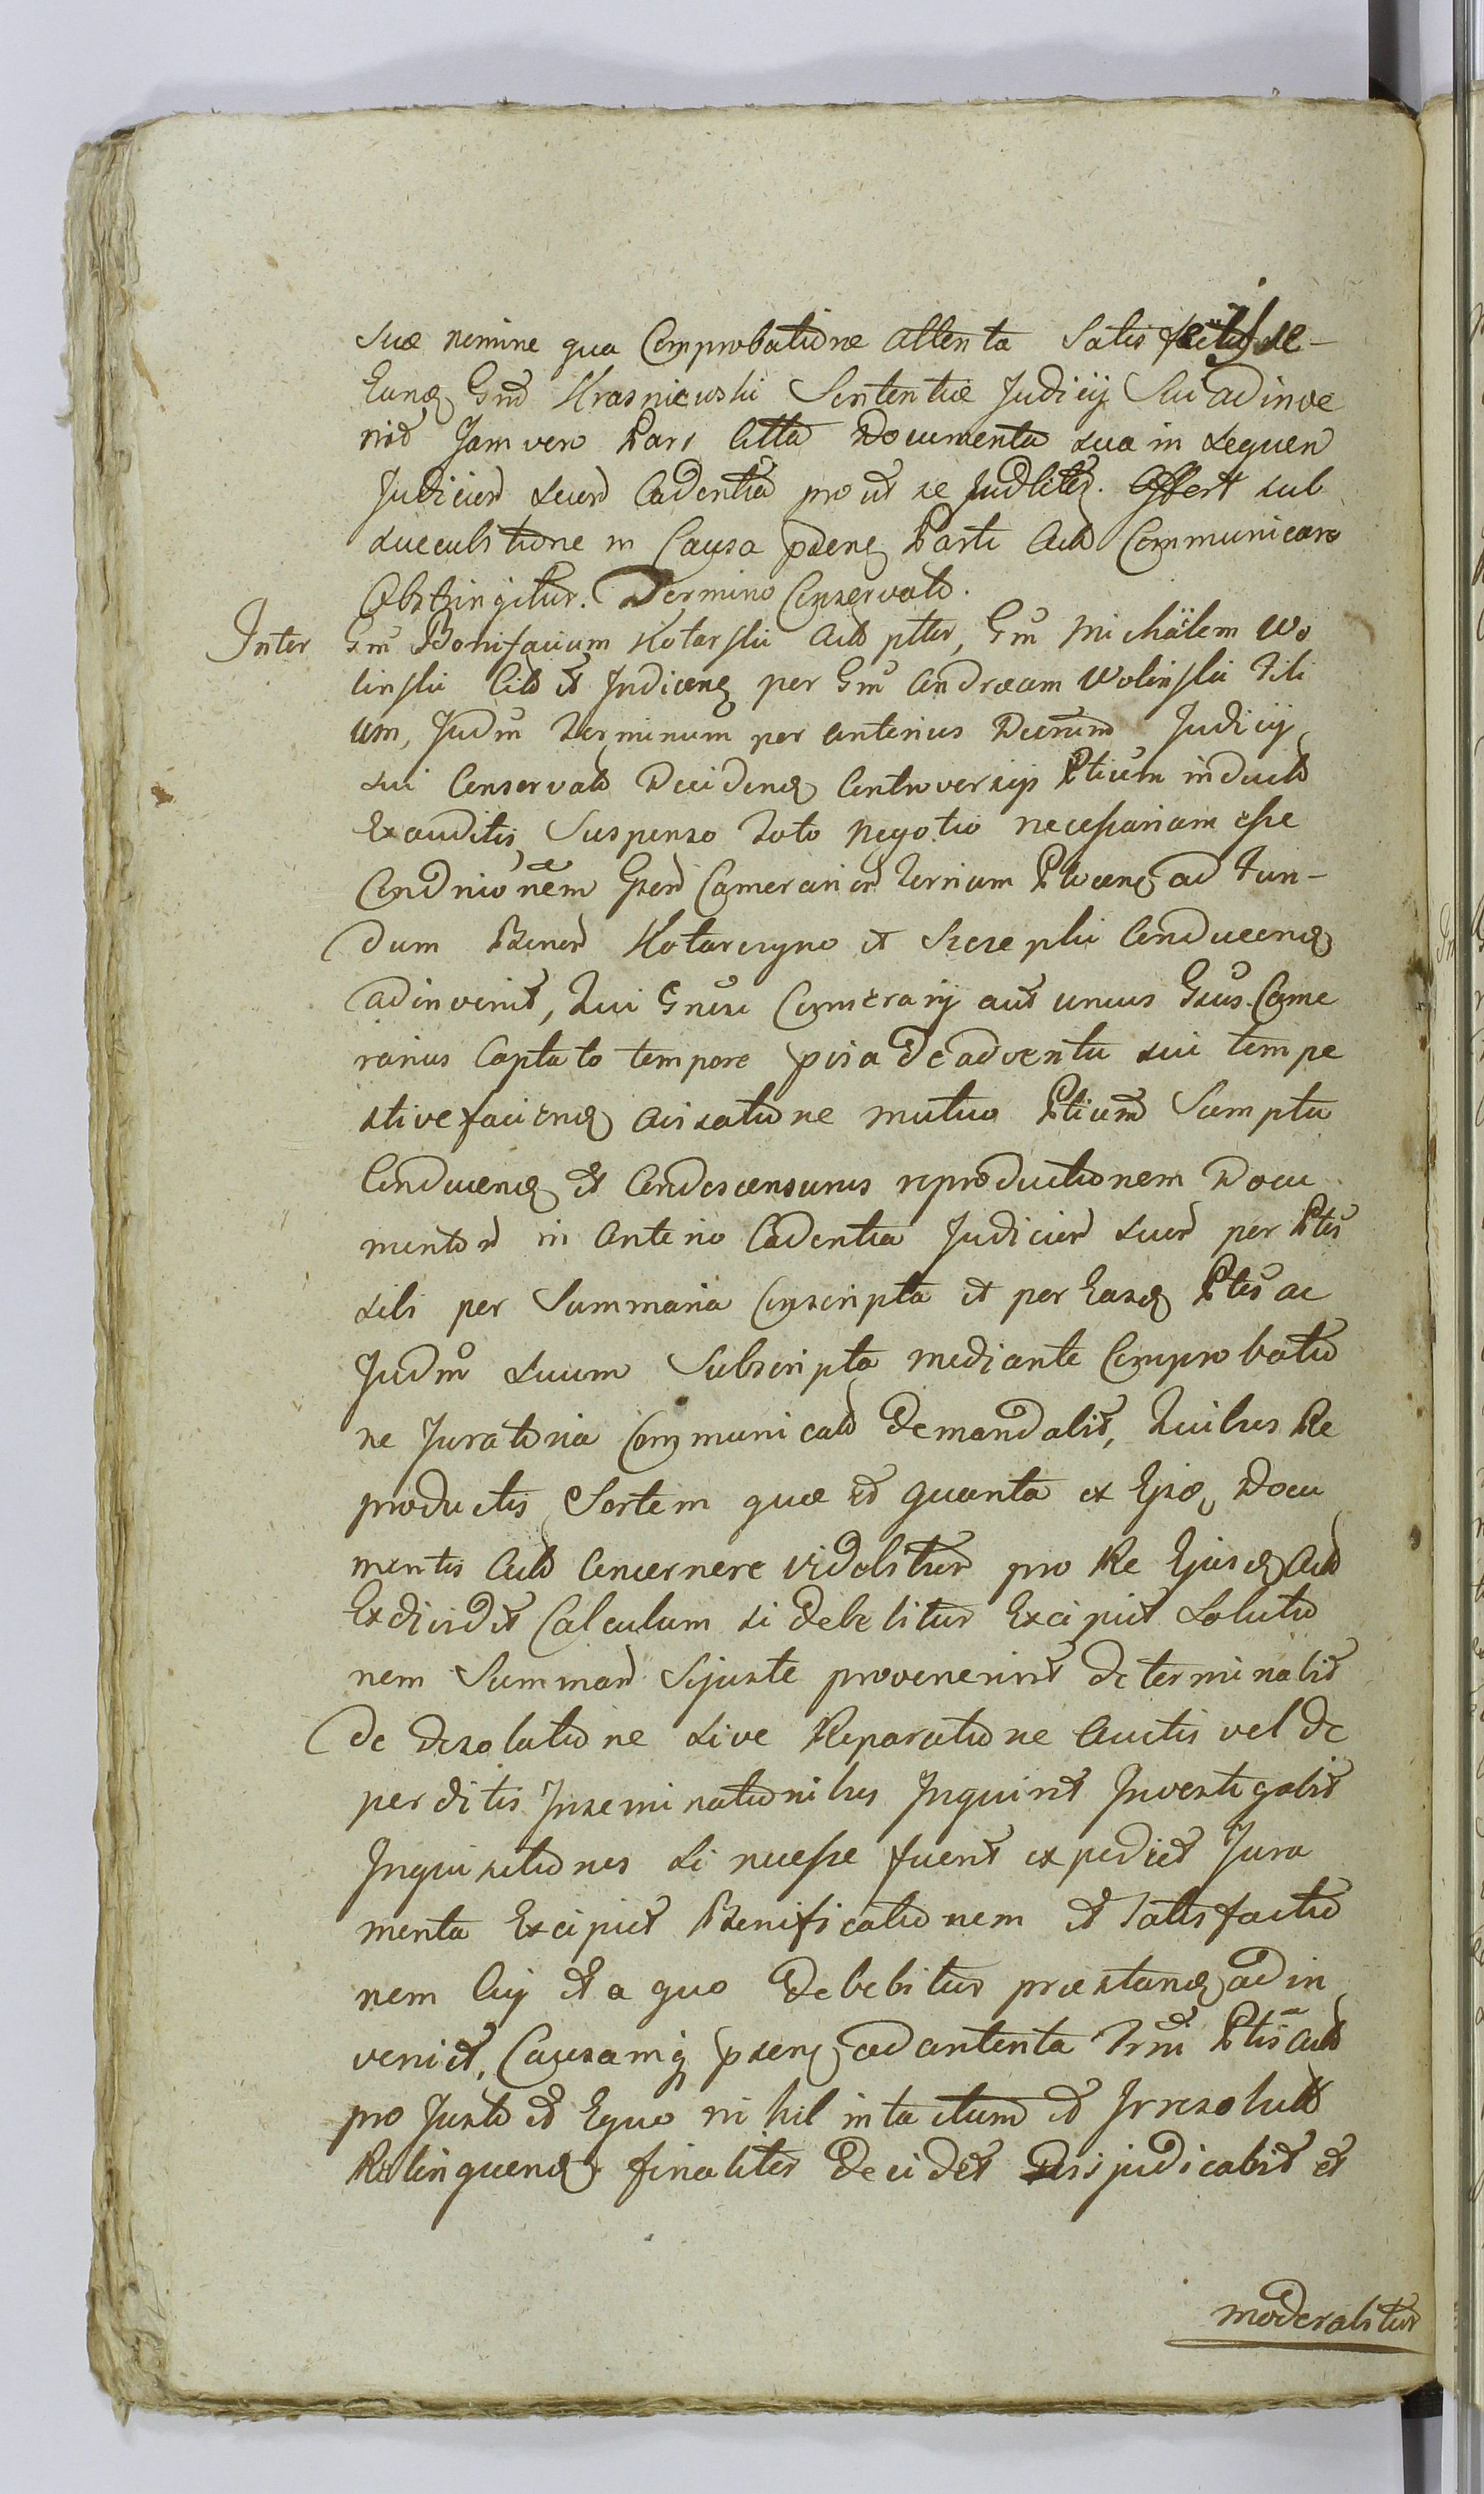 suæ nomine qua Comprobatione attenta Satis fecisse
Eund Gnd Krasniewski Sententiæ Judicij Sui adinve
nit Jam vero Pars Citta Documenta sua in sequen
Judicior suor Cadentia pro ut se Judliter. Offert sub
succubitione in Causa psenq Parti Acto Communicare
Obstringitur. Termino Conservato.
Inter Gm Bonifacium Kotarski Acto ptter, Gm Michälem Wo
linski Cito et Indicenq per Gm Andream Wolinski Fili
um, Judm Terminum per anterius Decretum Judicij
sui Conservato Decidenq Controversijs Ptium inducto
Exauditis Suspenso toto negotio necessariam esse
Condnionem Gsor Camerarior Terrium Plocenq ad Fun-
dum Bonor Kotarczyno et Szczepki Conducenq
adinvenit, Qui Gnosi Camerarij aut unus Gsus Came
rarius Captato tempore pvia de adventu sui tempe
stive facienq avisatione mutuo Ptium Sumptu
Conducenq et Condescensurus reproductionem Docu
mentor in anterio Cadentia Judicior suor per Ptes
sibi per Summaria Conscripta et per Easq Ptes ac
Judm suum Subscripta mediante Comprobatio
ne Juratoria Communicato demandabit, Quibus Re
productis Sortem quæ et quanta ex Ejsd Docu
mentis Acto Concernere videbitur pro Re Ejusq Acto
Exdividet Calculum si debebitur Excipiet Solutio
nem Summar Si juste provenerint determinabit
De Desolatione sive Reparatione Auctis vel de
perditis Inseminationibus Inquiret Investigabit
Inquisitiones si necesse fuerit expediet Jura
menta Excipiet Bonificationem et Satisfactio
nem Cuj et a quo debebitur præstanq adin
veniet, Causamq psenq ad antenta Trmi Ptis Acto
pro Justo et Equo nihil intactum et Irresoluto
Relinquenq finaliter decidet Disjudicabit et
moderabitur